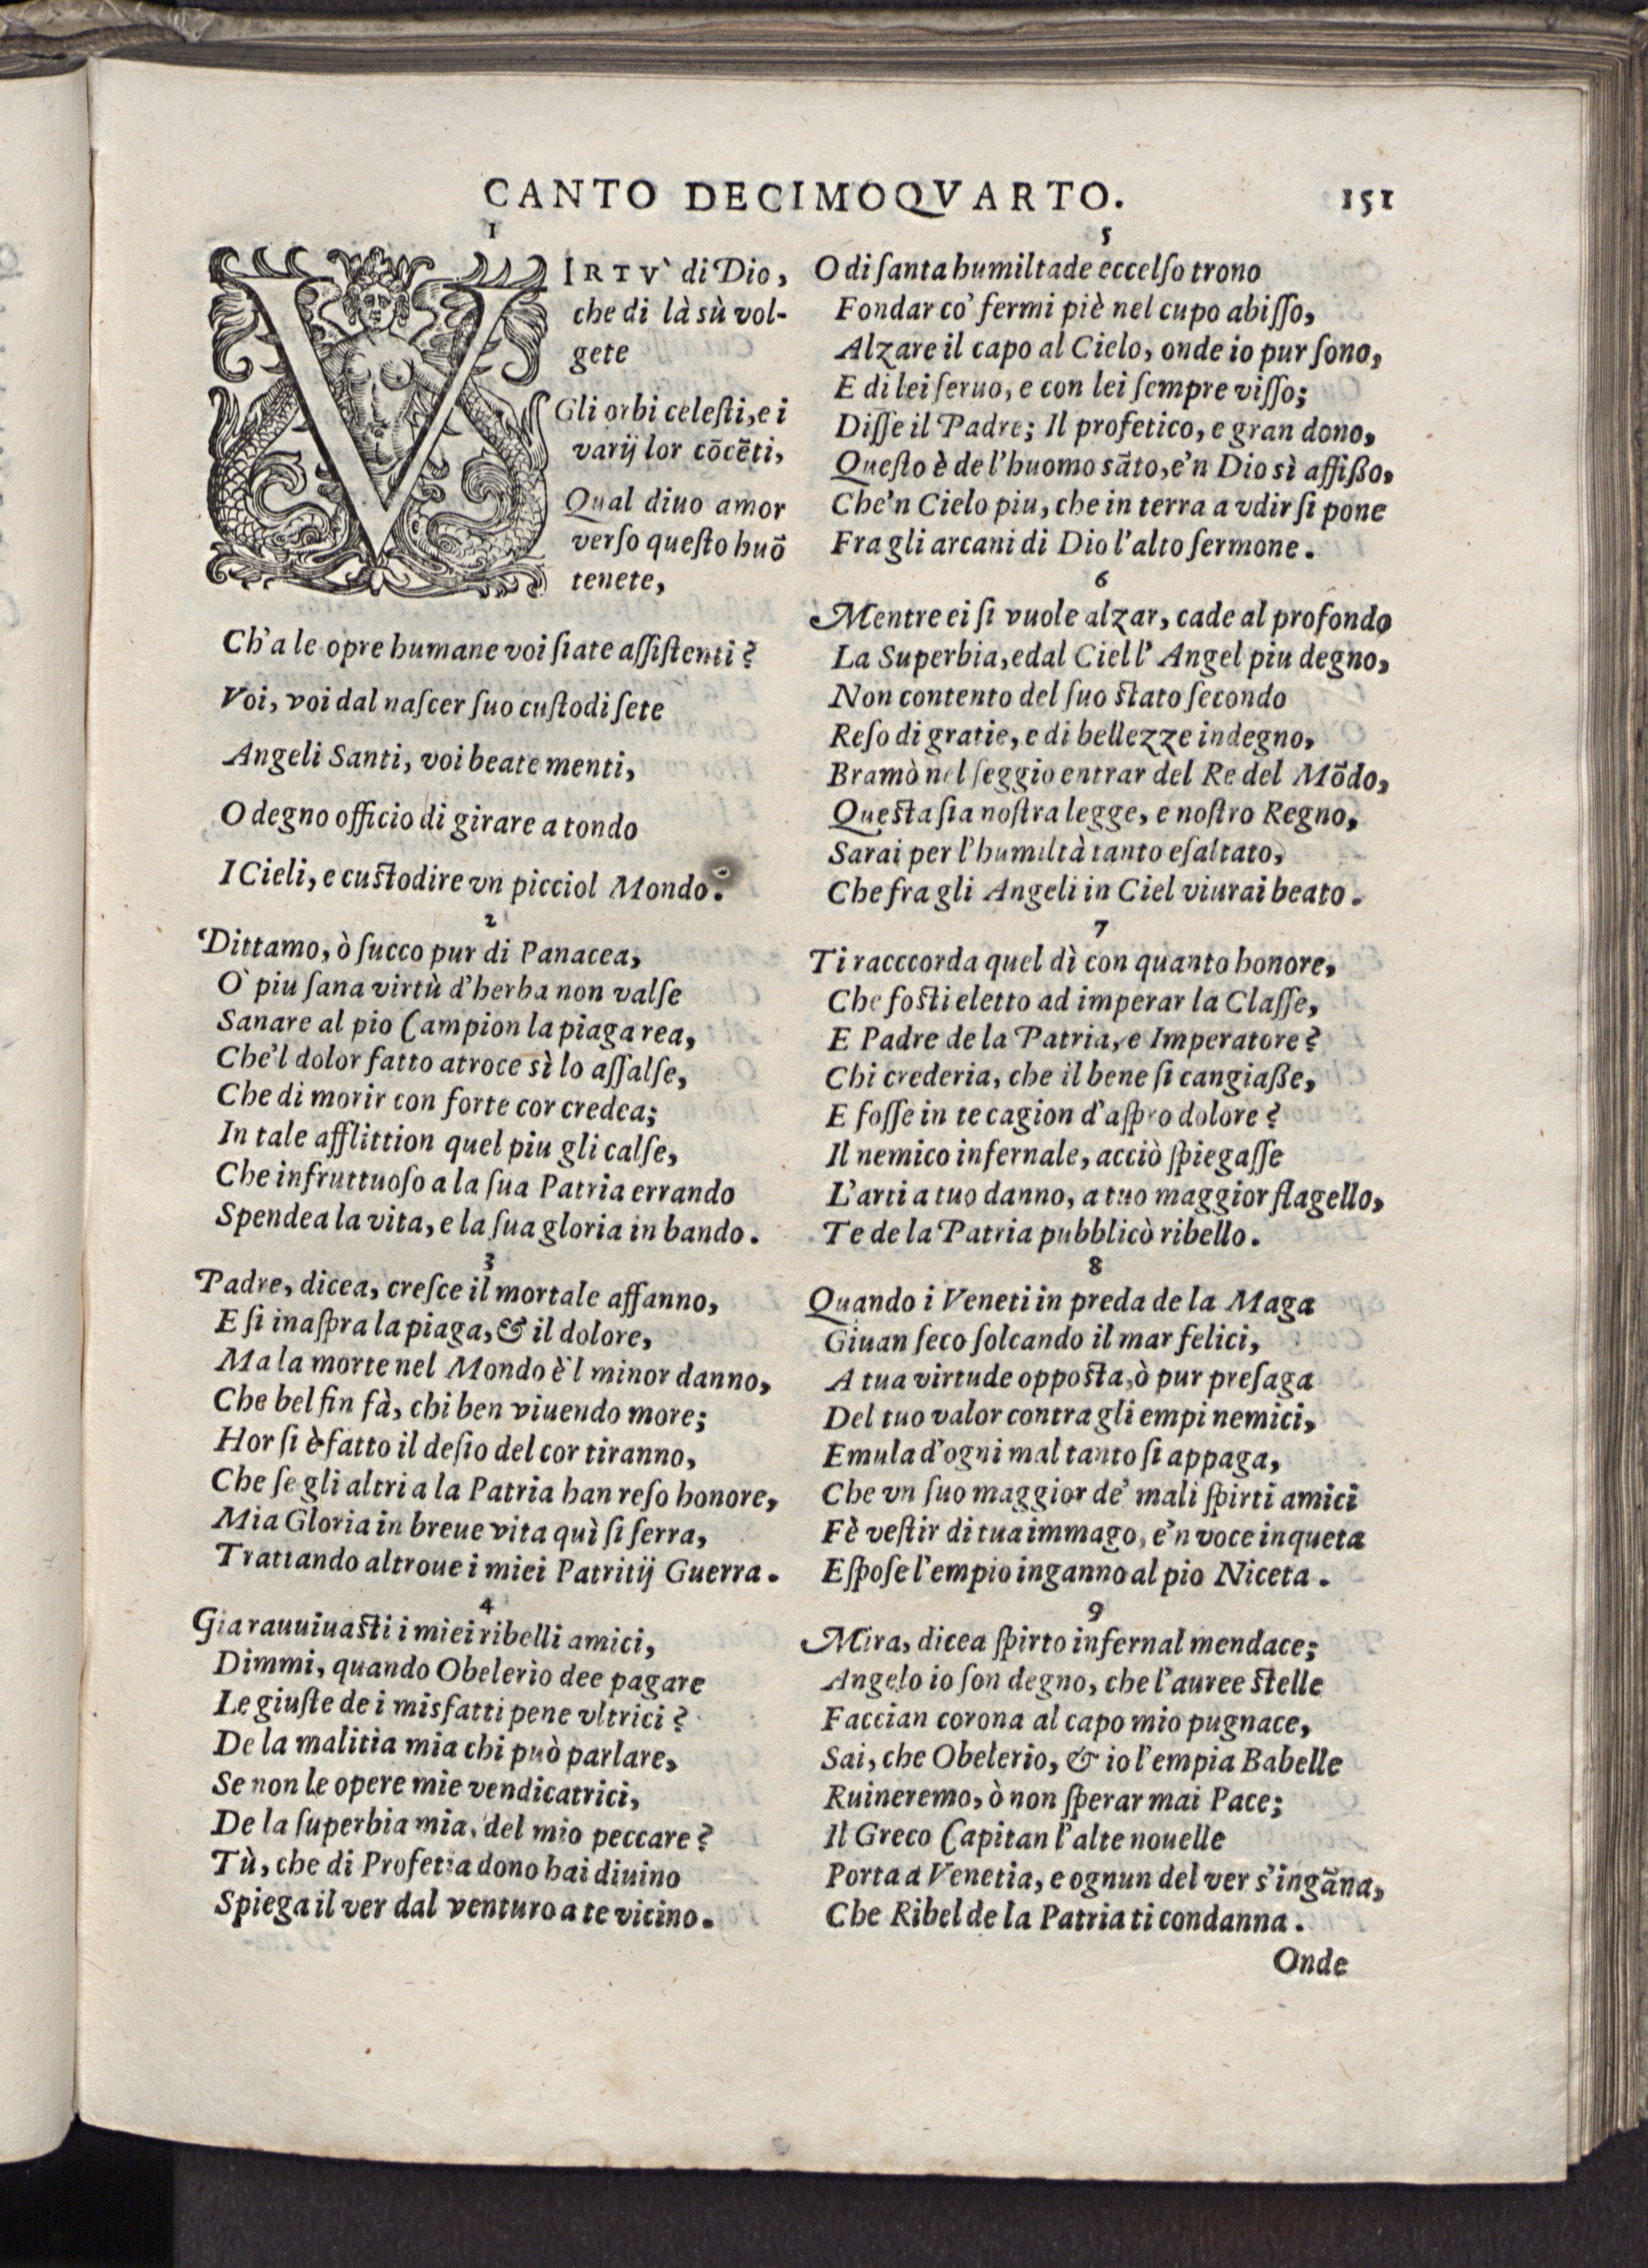 CANTO DECIMOQVARTO. 151
1
VIRTV` di Dio,
che di là sù vol-
gete
Gli orbi celeſti, e i
varij lor cõcẽti,
Qual diuo amor
verſo queſto huõ
tenete,
Ch'a le opre humane voi ſiate aſſiſtenti?
Voi, voi dal naſcer ſuo cuſtodi ſete
Angeli Santi, voi beate menti,
O degno officio di girare a tondo
I Cieli, e cuſtodire vn picciol Mondo.
2
Dittamo, ò ſucco pur di Panacea,
O' piu ſana virtù d'herba non valſe
Sanare al pio Campion la piaga rea,
Che'l dolor fatto atroce sì lo aſſalſe,
Che di morir con forte cor credea;
In tale afflittion quel piu gli calſe,
Che infruttuoſo a la ſua Patria errando
Spendea la vita, e la ſua gloria in bando.
3
Padre, dicea, creſce il mortale affanno,
E ſi inaſpra la piaga, & il dolore,
Ma la morte nel Mondo è'l minor danno,
Che bel fin fà, chi ben viuendo more;
Hor ſi è fatto il deſio del cor tiranno,
Che ſe gli altri a la Patria han reſo honore,
Mia Gloria in breue vita quì ſi ſerra,
Trattando altroue i miei Patritij Guerra.
4
Gia rauuiuaſti i miei ribelli amici,
Dimmi, quando Obelerio dee pagare
Le giuſte de i misfatti pene vltrici?
De la malitia mia chi può parlare,
Se non le opere mie vendicatrici,
De la ſuperbia mia, del mio peccare?
Tù, che di Profetia dono hai diuino
Spiega il ver dal venturo a te vicino.
5
O di ſanta humiltade eccelſo trono
Fondar co' fermi piè nel cupo abiſſo,
Alzare il capo al Cielo, onde io pur ſono,
E di lei ſeruo, e con lei ſempre viſſo;
Diſſe il Padre; Il profetico, e gran dono,
Queſto è de l'huomo sãto, e'n Dio sì affißo,
Che'n Cielo piu, che in terra a vdir ſi pone
Fra gli arcani di Dio l'alto ſermone.
6
Mentre ei ſi vuole alzar, cade al profondo
La Superbia, e dal Ciel l' Angel piu degno,
Non contento del ſuo ſtato ſecondo
Reſo di gratie, e di bellezze indegno,
Bramò nel ſeggio entrar del Re del Mõdo,
Queſta ſia noſtra legge, e noſtro Regno,
Sarai per l'humiltà tanto eſaltato,
Che fra gli Angeli in Ciel viurai beato.
7
Ti racccorda quel dì con quanto honore,
Che foſti eletto ad imperar la Claſſe,
E Padre de la Patria, e Imperatore?
Chi crederia, che il bene ſi cangiaße,
E foſſe in te cagion d'aſpro dolore?
Il nemico infernale, acciò ſpiegaſſe
L'arti a tuo danno, a tuo maggior flagello,
Te de la Patria pubblicò ribello.
8
Quando i Veneti in preda de la Maga
Giuan ſeco ſolcando il mar felici,
A tua virtude oppoſta, ò pur preſaga
Del tuo valor contra gli empi nemici,
Emula d'ogni mal tanto ſi appaga,
Che vn ſuo maggior de' mali ſpirti amici
Fè veſtir di tua immago, e'n voce inqueta
Eſpoſe l'empio inganno al pio Niceta.
9
Mira, dicea ſpirto infernal mendace;
Angelo io ſon degno, che l'auree ſtelle
Faccian corona al capo mio pugnace,
Sai, che Obelerio, & io l'empia Babelle
Ruineremo, ò non ſperar mai Pace;
Il Greco Capitan l'alte nouelle
Porta a Venetia, e ognun del ver s'ingãna,
Che Ribel de la Patria ti condanna.
Onde